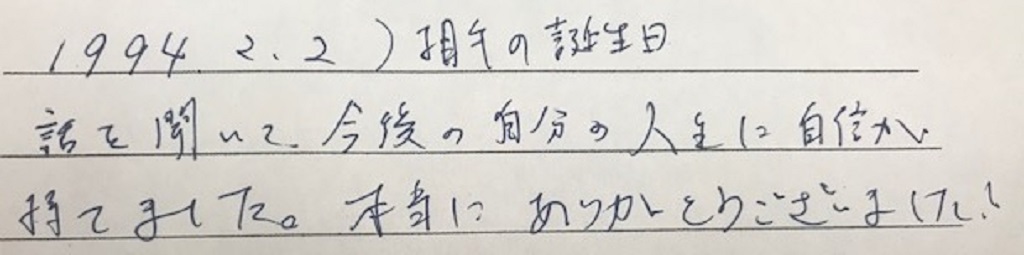 1994.2.2)相手の誕生日
話を聞いて、今後の自分の人生に自信が
持てました。本当にありがとうございました!